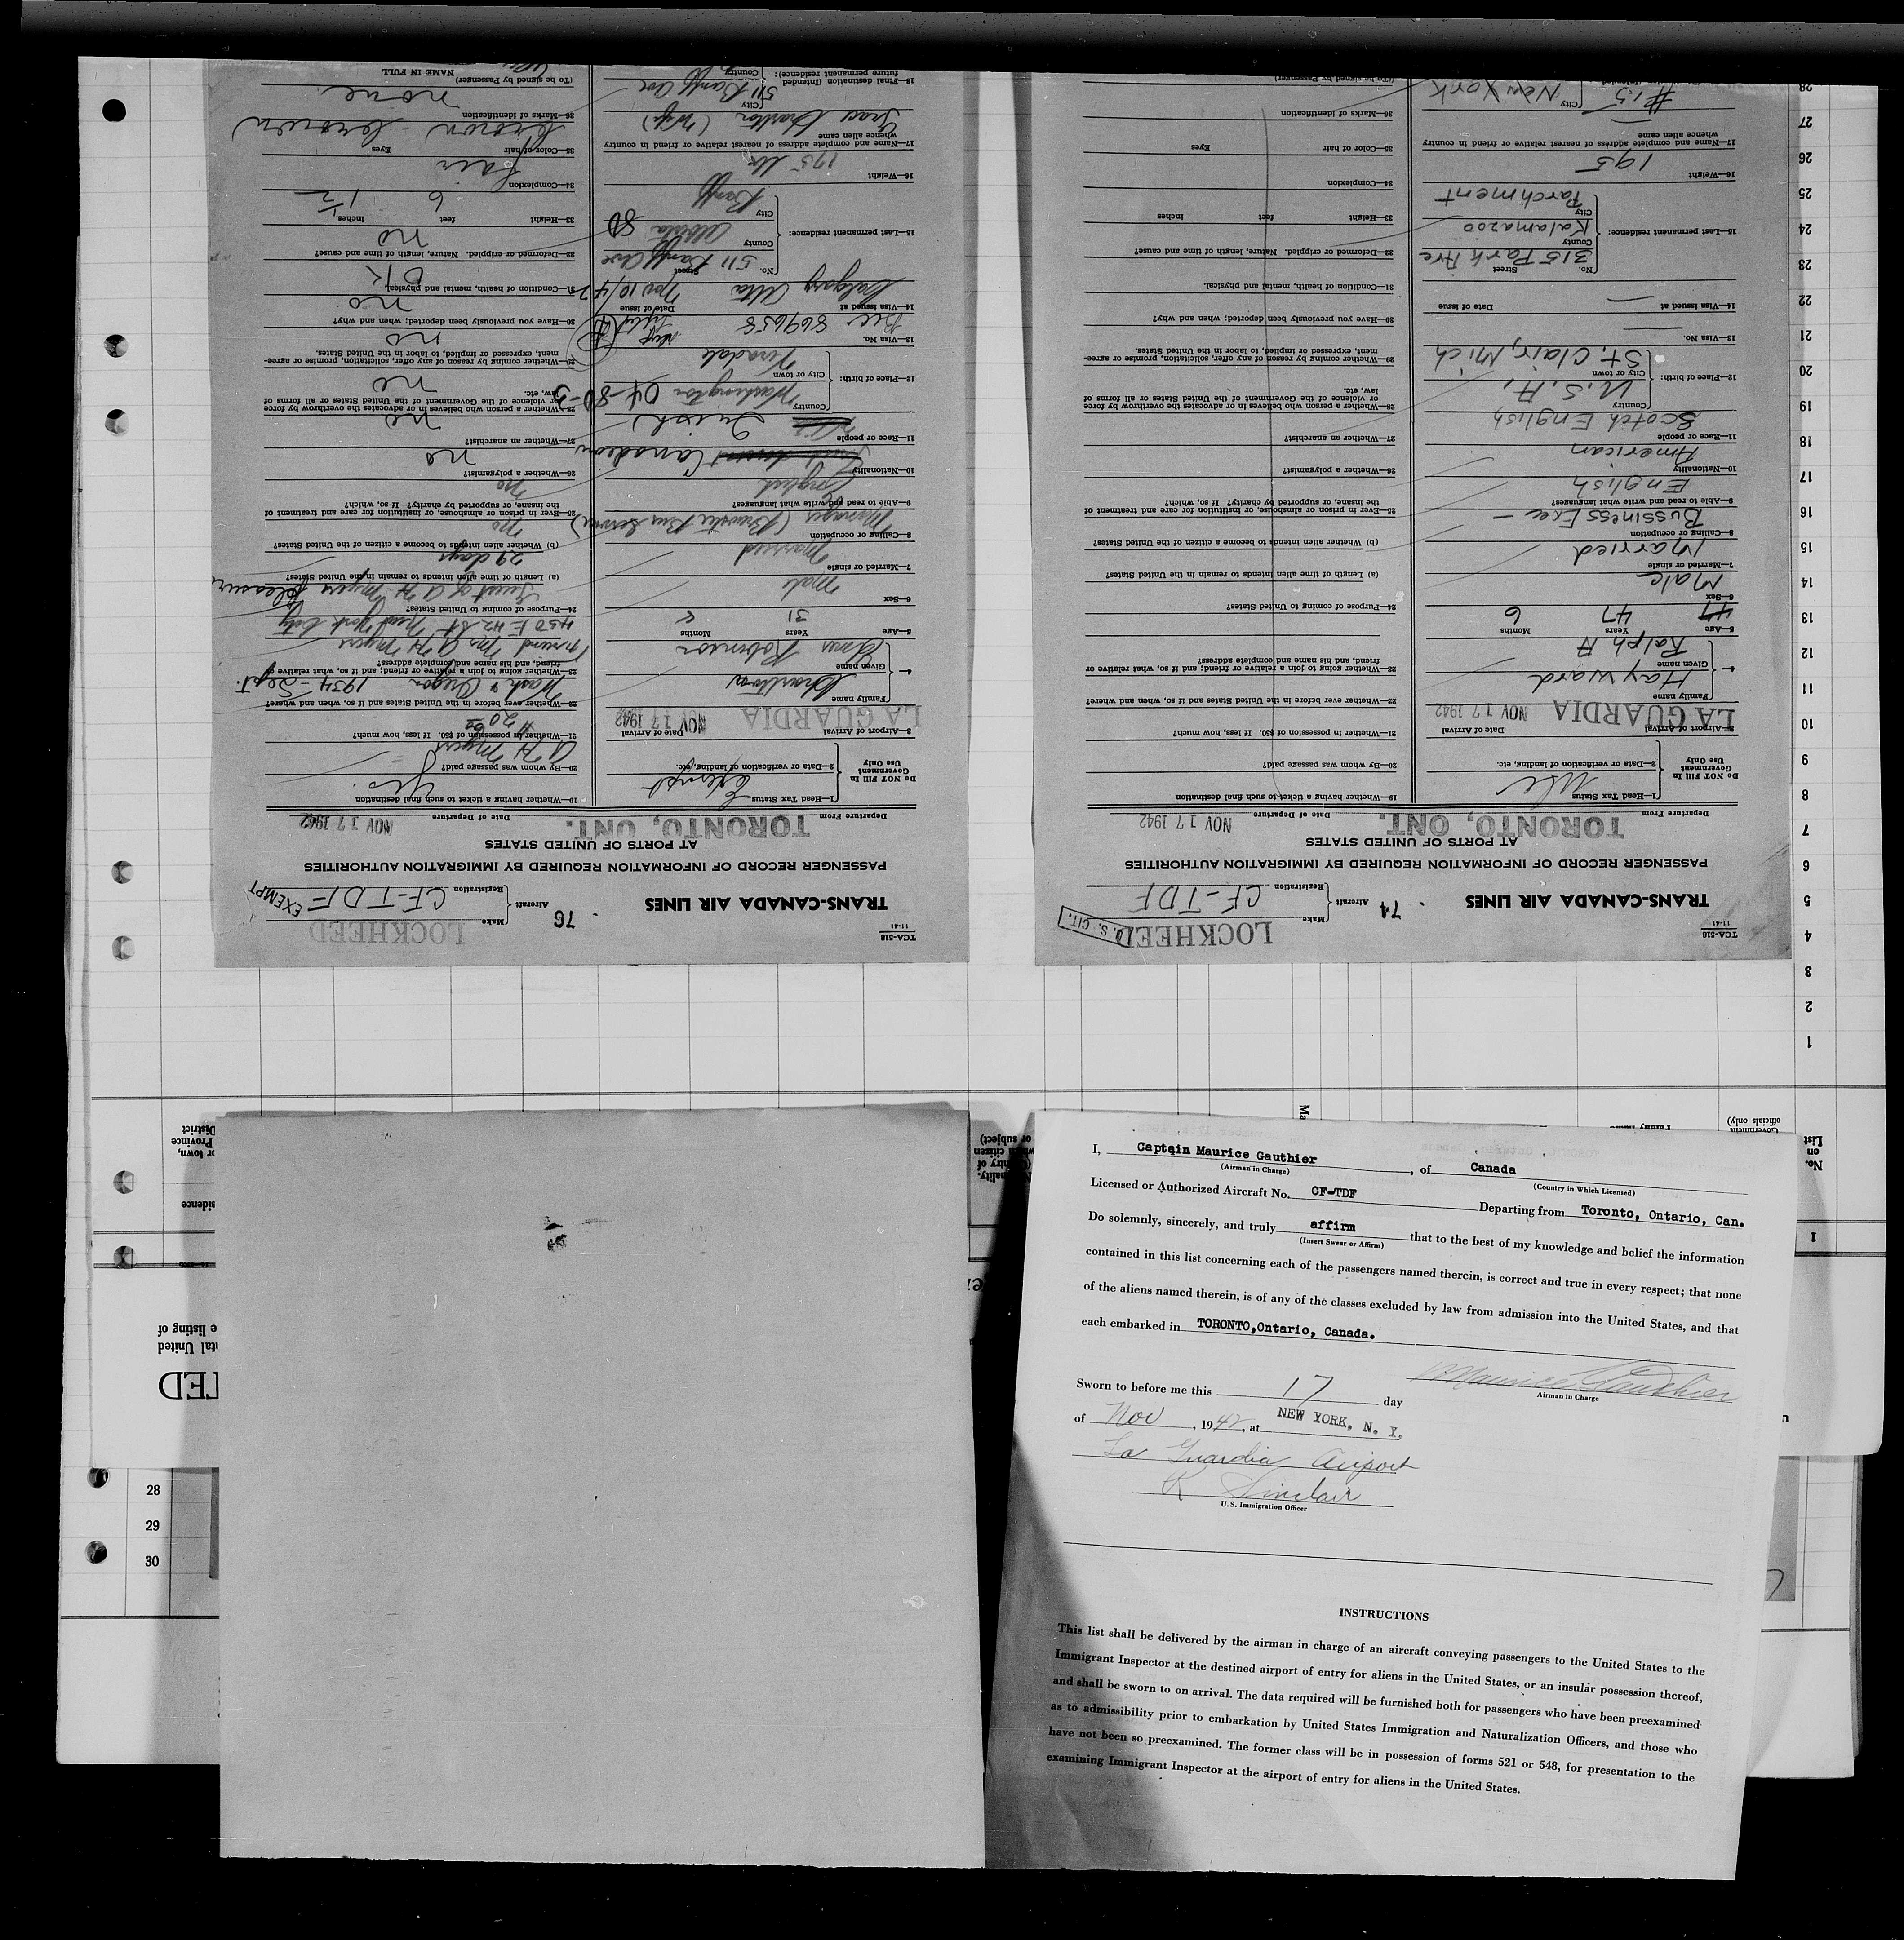 TCA-518
11-41
LOCKHEED
U. S. CIT.
TRANS-CANADA AIR LINES
74
Aircraft
Make
Registration CF-TDF
PASSENGER RECORD OF INFORMATION REQUIRED BY IMMIGRATION AUTHORITIES
AT PORTS OF UNITED STATES
Departure From TORONTO, ONT.
Date of Departure NOV 17 1942
Do NOT Fill In
Government
Use Only
1—Head Tax Status
2—Data or verification of landing, etc.
3—Airport of Arrival LA GUARDIA
Date of Arrival NOV 17 1942
4—
Family name Hayward
Given name Ralph A
5—Age 47 Years 6 Months
6—Sex Male
7—Married or single Married
8—Calling or occupation Bussiness Exec —
9—Able to read and write what languages? English
10—Nationality American
11—Race or people Scotch English
12—Place of birth:
Country U.S.A.
City or town St. Clair, Mich
13—Visa No. —
14—Visa issued at — Date of issue
15—Last permanent residence:
No. Street 315 Park Ave
County Kalamazoo
City Parchment
16—Weight 195
17—Name and complete address of nearest relative or friend in country
whence alien came —
#15
City New York
19—Whether having a ticket to such final destination
20—By whom was passage paid?
21—Whether in possession of $50. If less, how much?
22—Whether ever before in the United States and if so, when and where?
23—Whether going to join a relative or friend; and if so, what relative or
friend, and his name and complete address?
24—Purpose of coming to United States?
(a) Length of time alien intends to remain in the United States?
(b) Whether alien intends to become a citizen of the United States?
25—Ever in prison or almshouse, or institution for care and treatment of
the insane, or supported by charity? If so, which?
26—Whether a polygamist?
27—Whether an anarchist?
28—Whether a person who believes in or advocates the overthrow by force
or violence of the Government of the United States or all forms of
law, etc.
29—Whether coming by reason of any offer, solicitation, promise or agree-
ment, expressed or implied, to labor in the United States.
30—Have you previously been deported; when and why?
31—Condition of health, mental and physical.
32—Deformed or crippled. Nature, length of time and cause?
33—Height feet inches
34—Complexion
35—Color of hair Eyes
36—Marks of identification
(To be signed by Passenger)
TCA-518
11-41
LOCKHEED
TRANS-CANADA AIR LINES
76
Aircraft
Make
Registration CF-TDF
EXEMPT
PASSENGER RECORD OF INFORMATION REQUIRED BY IMMIGRATION AUTHORITIES
AT PORTS OF UNITED STATES
Departure From TORONTO, ONT.
Date of Departure NOV 17 1942
Do NOT Fill In
Government
Use Only
1—Head Tax Status Exempt
2—Data or verification of landing, etc.
3—Airport of Arrival LA GUARDIA
Date of Arrival NOV 17 1942
4—
Family name Charlton
Given name Robinson
5—Age 31 Years Months
6—Sex Male
7—Married or single Married
8—Calling or occupation Manager (Brewster Bus Service)
9—Able to read and write what languages? English
10—Nationality Canadian
11—Race or people Irish
12—Place of birth:
Country Washington
City or town
13—Visa No. 869658
14—Visa issued at Calgary Alta Date of issue Nov 10/42
15—Last permanent residence:
No. Street 511 Banff Ave
County Alberta
City Banff
16—Weight 195 lbs
17—Name and complete address of nearest relative or friend in country
whence alien came Charlton (Wife)
18—Final destination (Intended
future permanent residence):
City 511 Banff Ave
County
19—Whether having a ticket to such final destination Yes.
20—By whom was passage paid? A H Myers
21—Whether in possession of $50. If less, how much? 20
22—Whether ever before in the United States and if so, when and where?
Wash & Oregon 1934 - Sept.
23—Whether going to join a relative or friend; and if so, what relative or
friend, and his name and complete address?
Friend Mr A H Myers
450 E 42 St New York City
24—Purpose of coming to United States?
Guest of A H Myers Pleasure
(a) Length of time alien intends to remain in the United States? 29 days
(b) Whether alien intends to become a citizen of the United States? no
25—Ever in prison or almshouse, or institution for care and treatment of
the insane, or supported by charity? If so, which? no
26—Whether a polygamist? no
27—Whether an anarchist? no
28—Whether a person who believes in or advocates the overthrow by force
or violence of the Government of the United States or all forms of
law, etc. no
29—Whether coming by reason of any offer, solicitation, promise or agree-
ment, expressed or implied, to labor in the United States. no
30—Have you previously been deported; when and why? no
31—Condition of health, mental and physical. OK
32—Deformed or crippled. Nature, length of time and cause? no
33—Height 6 feet 1½ inches
34—Complexion fair
35—Color of hair brown Eyes brown
36—Marks of identification none
(To be signed by Passenger)
NAME IN FULL
1
2
3
4
5
6
7
8
9
10
11
12
13
14
15
16
17
18
19
20
21
22
23
24
25
26
27
28
No.
on
List
28
29
30
I, Captain Maurice Gauthier, of Canada
(Airman in Charge)
(Country in Which Licensed)
Licensed or Authorized Aircraft No. CF-TDF Departing from Toronto, Ontario, Can.
Do solemnly, sincerely, and truly affirm that to the best of my knowledge and belief the information
(Insert Swear or Affirm)
contained in this list concerning each of the passengers named therein, is correct and true in every respect; that none
of the aliens named therein, is of any of the classes excluded by law from admission into the United States, and that
each embarked in TORONTO,Ontario, Canada.
Maurice Gauthier
Airman in Charge
Sworn to before me this 17 day
of Nov, 1942, at NEW YORK, N. Y.
La Guardia Airport
K Sinclair
U.S. Immigration Officer
INSTRUCTIONS
This list shall be delivered by the airman in charge of an aircraft conveying passengers to the United States to the
Immigrant Inspector at the destined airport of entry for aliens in the United States, or an insular possession thereof,
and shall be sworn to on arrival. The data required will be furnished both for passengers who have been preexamined
as to admissibility prior to embarkation by United States Immigration and Naturalization Officers, and those who
have not been so preexamined. The former class will be in possession of forms 521 or 548, for presentation to the
examining Immigrant Inspector at the airport of entry for aliens in the United States.